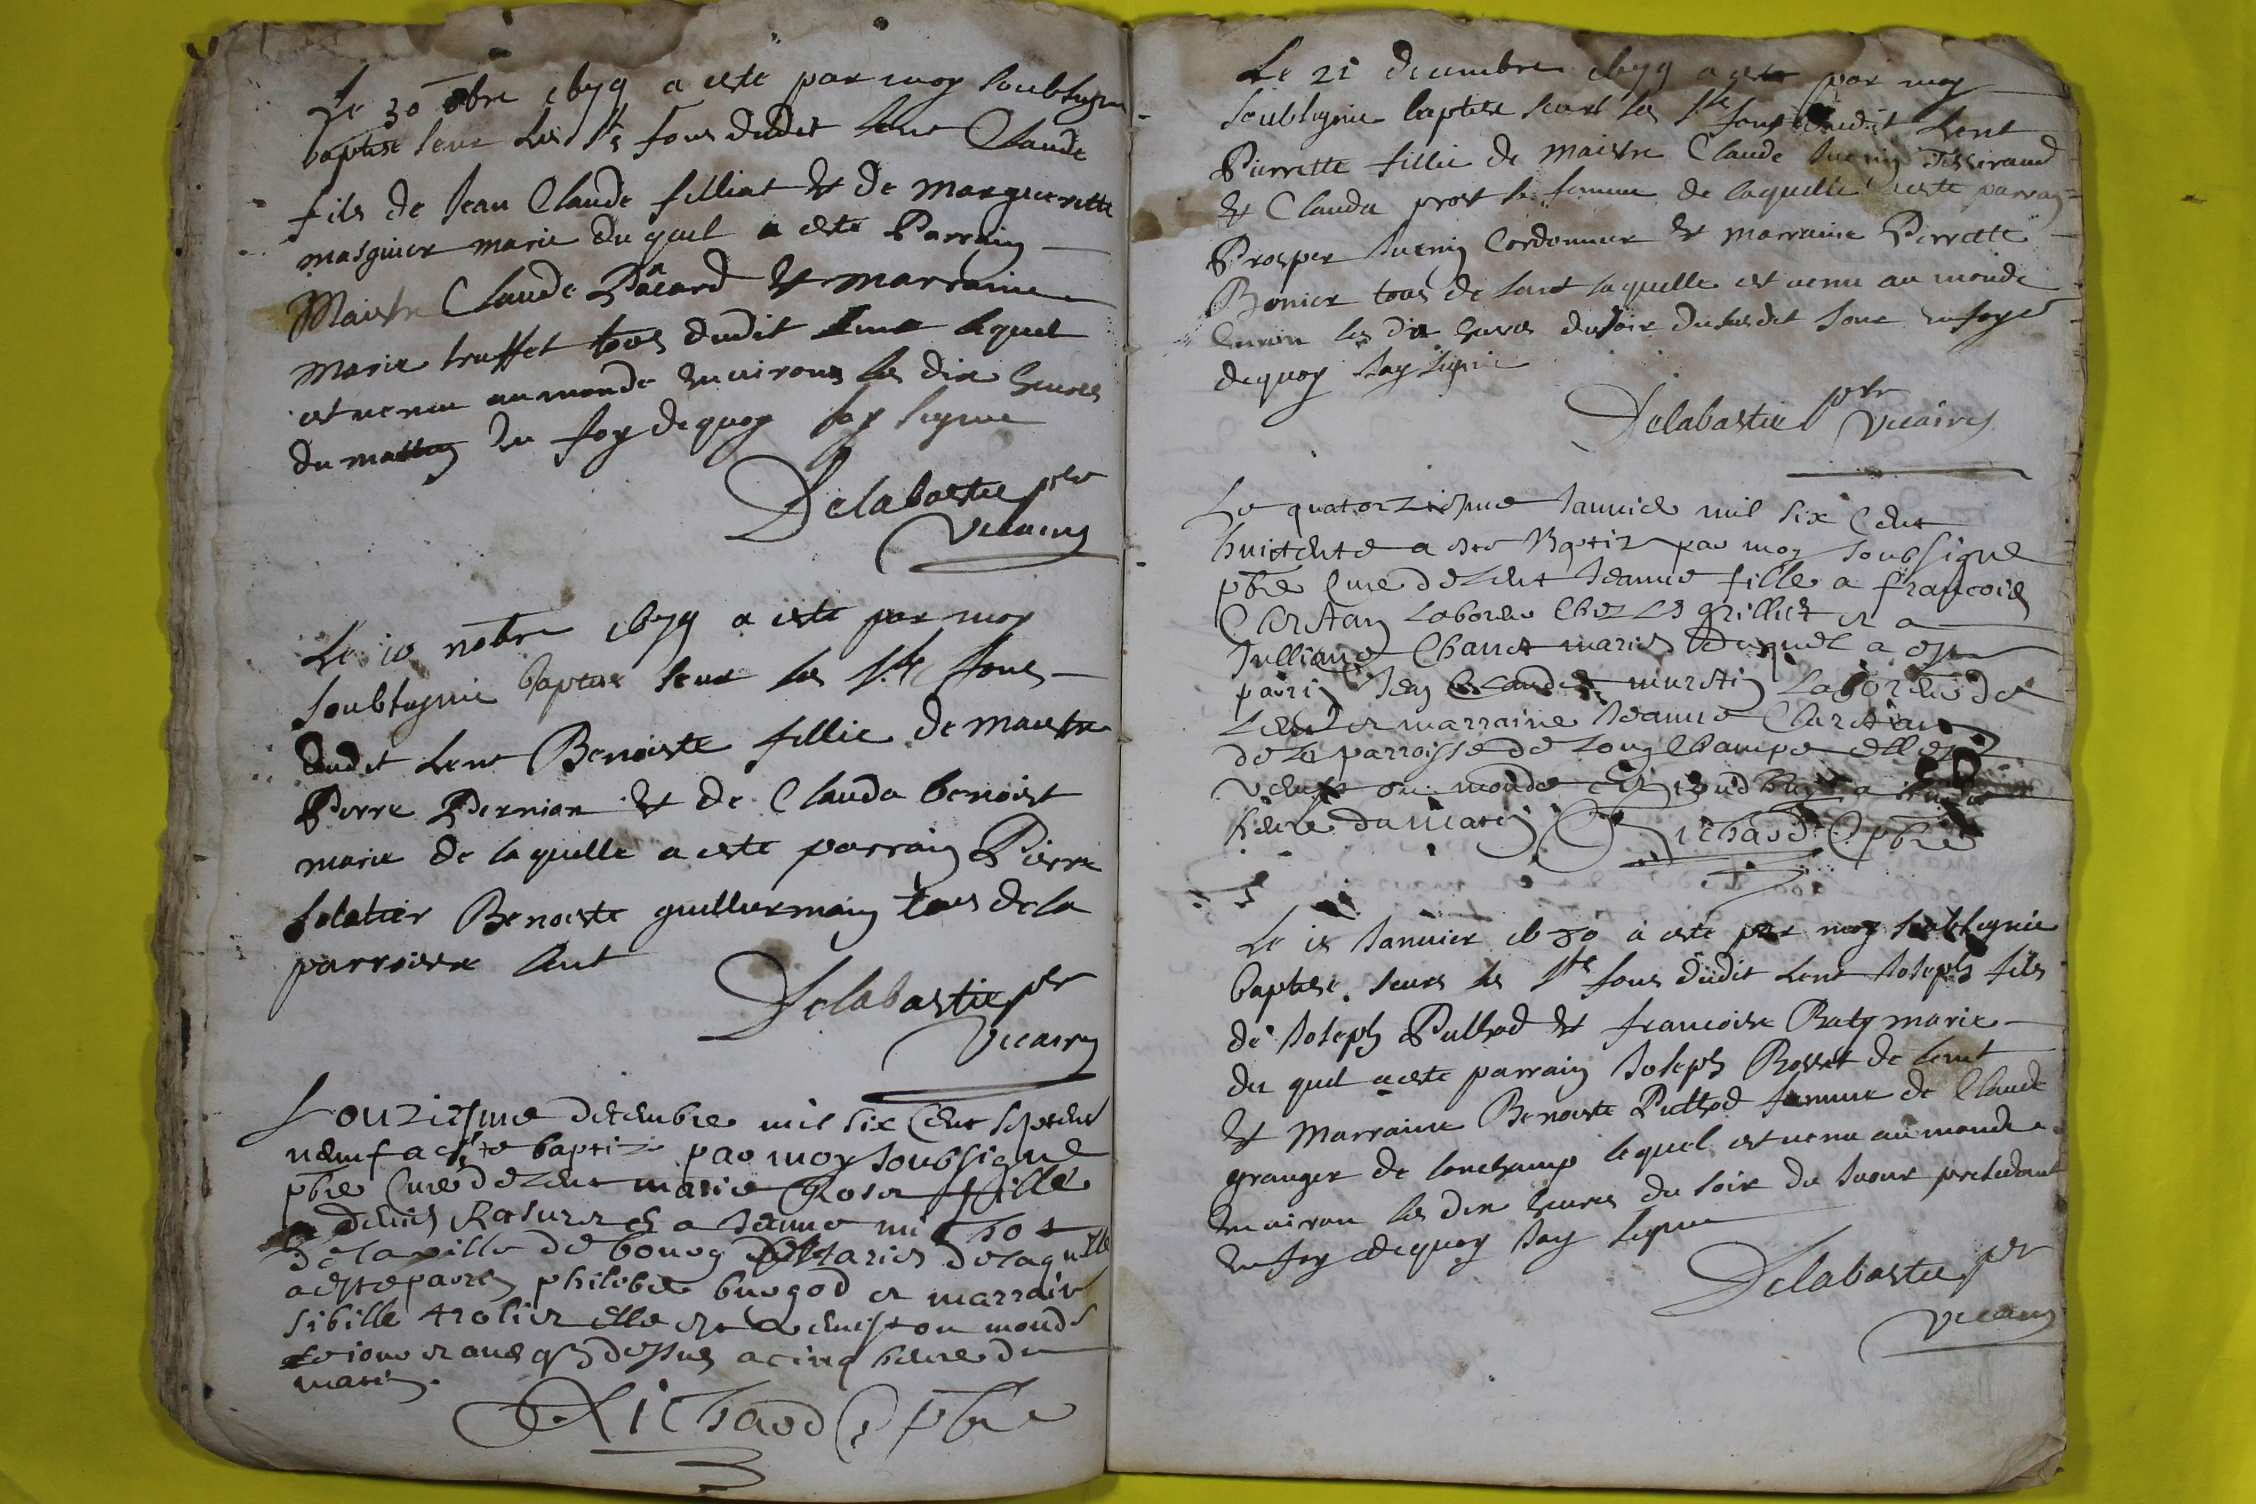 Le 30 obre 1679 a este par moy soubsigne
baptise seur les Sts fons dudit Lent Claude
fils de Jean Claude filliat & de Marguerette
masguier marie du quel a este Parrain
Maistre Claude Pacard & marraine
Marie truffet tous dudit Lent lequel
est venu au monde environs les dix heures
du mattin en foy de quoy jay signe
Delabastie pbr
Vicaire
Le 10 nobre 1679 a este par moy
soubsignie baptise seur les Sts fons
dudit Lent Benoiste fillie de maistre
Pierre Pernian & de Clauda benoist
marie de laquelle a este parrain Pierre
folatier Benoiste guillermain tous de la
parroisse Lent
Delabastie pbr
Vicaire
Lonziesme decembre mil six Cent septente
neuf a este baptize par moy soubsigne
pbre Cure de Lent marie Rose fille
a denis et a Jeanne
de la ville de bourg Maries de laquelle
a este parrin philibe burgod et marraine
sibille trolier elle est au monde
le iour et an q dessus a cinq heure du
matin.
Richard C pbre
Le 21 decembre 1679 a este par moy
soubsignie baptise seur les Sts fons dudit Lent
Pierrette fillie de maistre Claude Juenin Tisserand
& Clauda prost sa femme de laquelle a este parrain
Prosper Juenin Cordonnier & marraine Pierrette
Bonier tous de Lent laquelle est venu au monde
environ les dix heures du soir du susdit jour en foy
de quoy jay signie
Delabastie pbr
Vicaire
Le quatorziesme Janvier mil six Cent
huictente a este Baptize par moy soubsigne
pbre Cure de Lent Jeanne fille a francois
Chrestain Laboreur Chez Le grilliet et a
Julliane Chanet maries duquel a este
parrin Jean Claude Laboreur de
Lent et marraine Jeanne
de la parroisse de Longchamps elle est
venue au monde
heure du matin Richard C pbre
Le 15 Janvier 1680 a este par moy soubsignie
baptise seurs les Sts fons dudit Lent Joseph fils
de Joseph Pulliod & francoise Raty marie
du quel a este parrain Joseph Rosset de Lent
& Marraine Benoiste Pulliod femme de Claude
granger de lonchamp lequel est venu au monde
environ les dix heures du soir du Jour precedant
en foy de quoy jay signe
Delabastie pbr
Vicaire